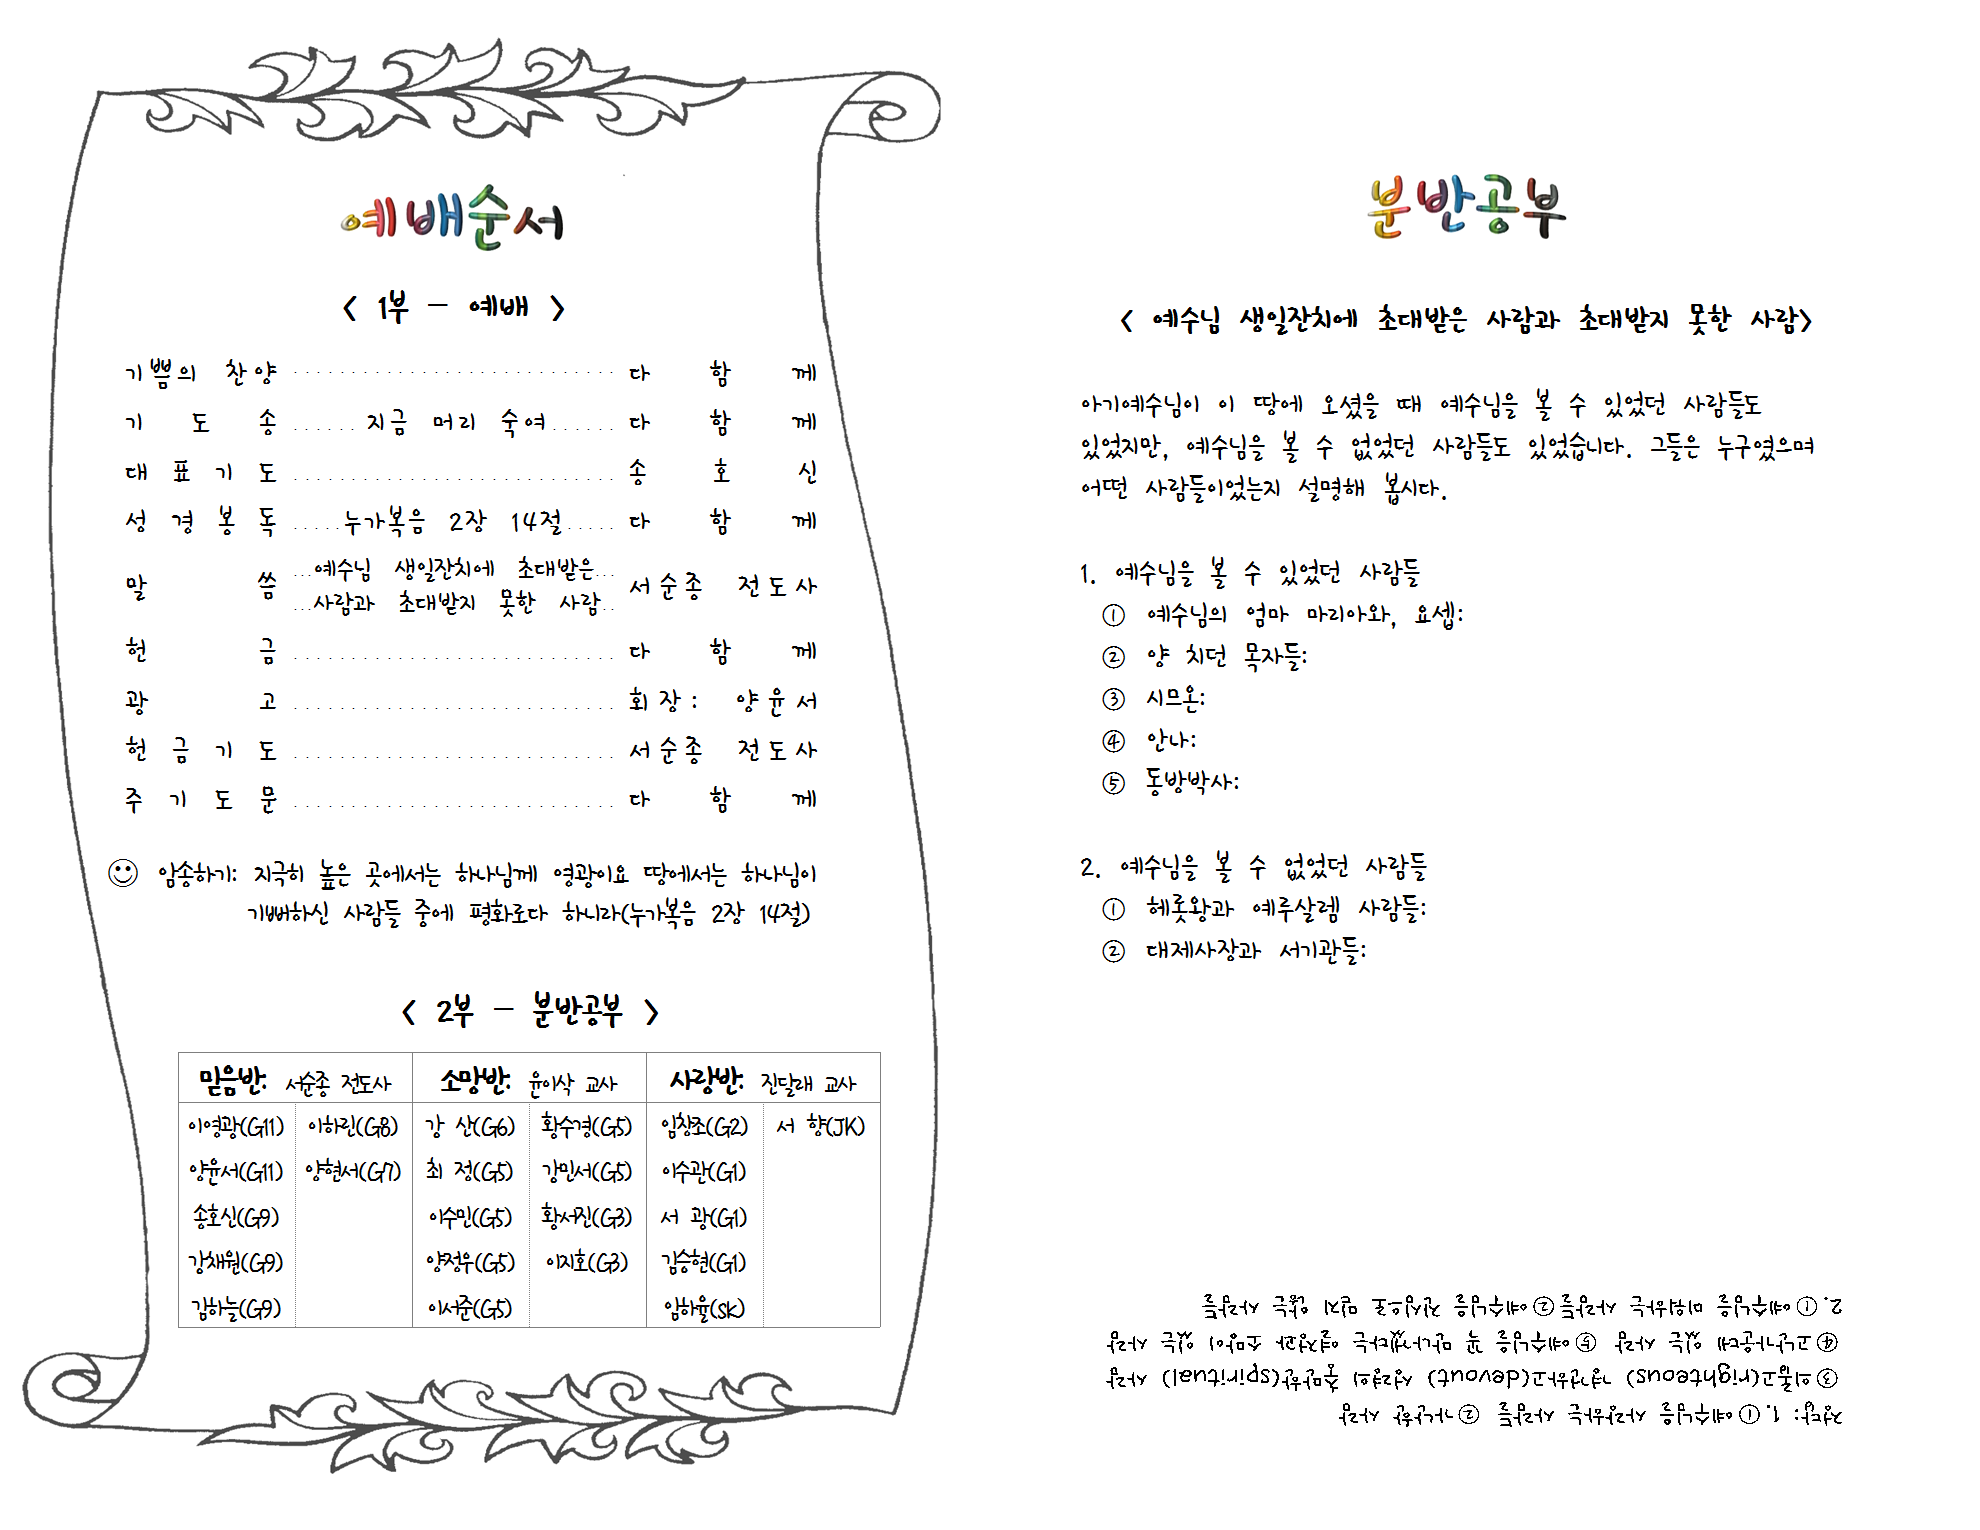 예배순서
< 1부 - 예배 >
기쁨의 찬양 ............................ 다 함 께
기 도 송 ......지금 머리 숙여...... 다 함 께
대 표 기 도 ............................ 송 호 신
성 경 봉 독 .....누가복음 2장 14절..... 다 함 께
말 씀 ...예수님 생일잔치에 초대받은... 서순종 전도사
...사람과 초대받지 못한 사람..
헌 금 ............................ 다 함 께
광 고 ............................ 회장: 양윤서
헌 금 기 도 ............................ 서순종 전도사
주 기 도 문 ............................ 다 함 께
☺ 암송하기: 지극히 높은 곳에서는 하나님께 영광이요 땅에서는 하나님이
기뻐하신 사람들 중에 평화로다 하니라(누가복음 2장 14절)
< 2부 - 분반공부 >
믿음반: 서순종 전도사 소망반: 윤이삭 교사 사랑반: 진달래 교사
이영광(G11) 이하린(G8) 강 산(G6) 황수경(G5) 임창조(G2) 서 향(JK)
양윤서(G11) 양현서(G7) 최 정(G5) 강민서(G5) 이수관(G1)
송호신(G9) 이수민(G5) 황서진(G3) 서 광(G1)
강채원(G9) 양정우(G5) 이지호(G3) 김승현(G1)
김하늘(G9) 이서준(G5) 임하율(SK)
분반공부
< 예수님 생일잔치에 초대받은 사람과 초대받지 못한 사람>
아기예수님이 이 땅에 오셨을 때 예수님을 볼 수 있었던 사람들도
있었지만, 예수님을 볼 수 없었던 사람들도 있었습니다. 그들은 누구였으며
어떤 사람들이었는지 설명해 봅시다.
1. 예수님을 볼 수 있었던 사람들
① 예수님의 엄마 마리아와, 요셉:
② 양 치던 목자들:
③ 시므온:
④ 안나:
⑤ 동방박사:
2. 예수님을 볼 수 없었던 사람들
① 헤롯왕과 예루살렘 사람들:
② 대제사장과 서기관들:
정답: 1. ①예수님을 사랑하는 사람들 ②가난한 사람
③의롭고(righteous) 경건하고(devout) 성령이 충만한(spiritual) 사람
④고난가운데 있는 사람 ⑤예수님을 꼭 만나겠다는 열정과 소망이 있는 사람
2. ①예수님을 미워하는 사람들②예수님을 진심으로 믿지 않는 사람들